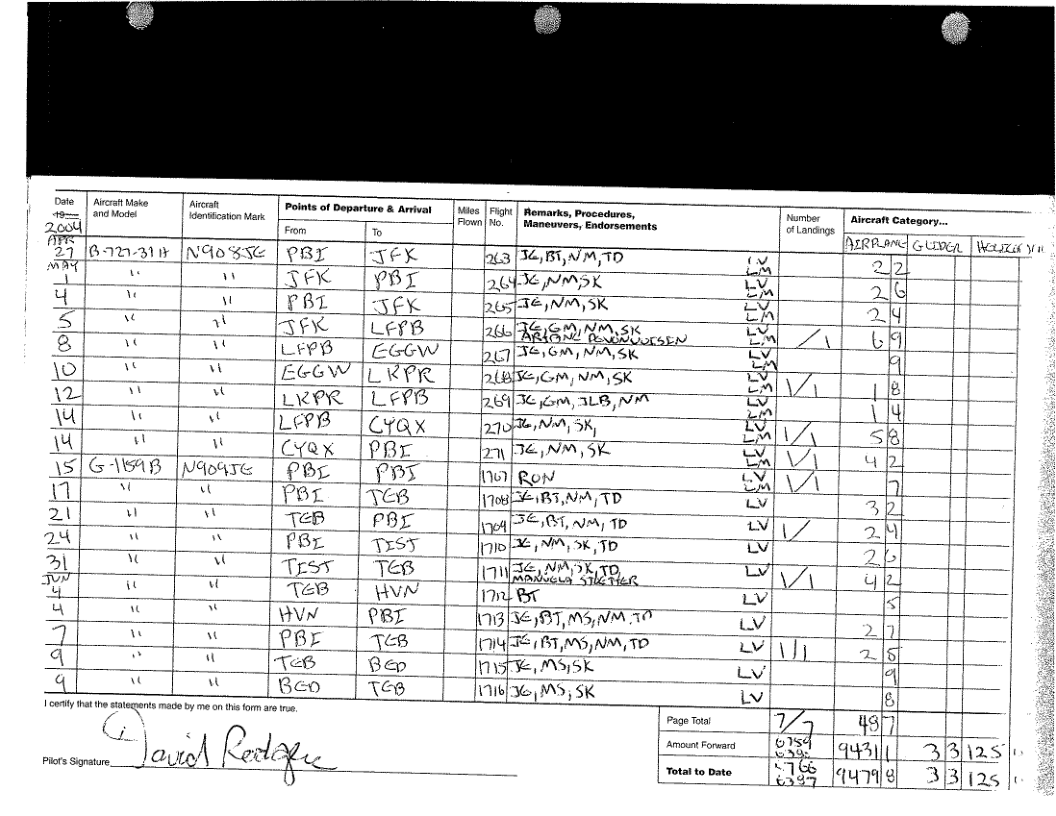 Date Aircraft Make and Model Aircraft Identification Mark Points of Departure & Arrival Miles Flown Flight No. Remarks, Procedures, Maneuvers, Endorsements Number of Landings Aircraft Category...
19 2004 From To AIRPLANE GLIDER
APR 27 B-727-31H N908JE PBI JFK 263 JE, BT, NM, TD LV LM 2 2
MAY 1 " " JFK PBI 264 JE, NM, SK LV LM 2 6
4 " " PBI JFK 265 JE, NM, SK LV LM 2 4
5 " " JFK LFPB 266 JE, GM, NM, SK LV LM / 1 6 9
8 " " LFPB EGGW 267 JE, GM, NM, SK LV LM 9
10 " " EGGW LKPR 268 JE, GM, NM, SK LV LM 1/1 1 8
12 " " LKPR LFPB 269 JE, GM, JLB, NM LV LM 1 4
14 " " LFPB CYQX 270 JE, NM, SK, LV LM 1/1 5 8
14 " " CYQX PBI 271 JE, NM, SK LV LM 1/1 4 2
15 G-1159B N909JE PBI PBI 1707 RON LV LM 1/1 7
17 " " PBI TEB 1708 JE, BT, NM, TD LV 3 2
21 " " TEB PBI 1709 JE, BT, NM, TD LV 1/ 2 4
24 " " PBI TIST 1710 JE, NM, SK, TD LV 2 6
31 " " TIST TEB 1711 JE, NM, SK, TD, MANUELA LV 1/1 4 2
JUN 4 " " TEB HVN 1712 BT LV 5
4 " " HVN PBI 1713 JE, BT, MS, NM, TD LV 2 7
7 " " PBI TEB 1714 JE, BT, MS, NM, TD LV 1/1 2 5
9 " " TEB BED 1715 JE, MS, SK LV 9
9 " " BED TEB 1716 JE, MS, SK LV 8
I certify that the statements made by me on this form are true.
Page Total 7/7 48 7
Amount Forward 9431 1 3 3 125
Pilot's Signature David
Total to Date 9479 8 3 3 125